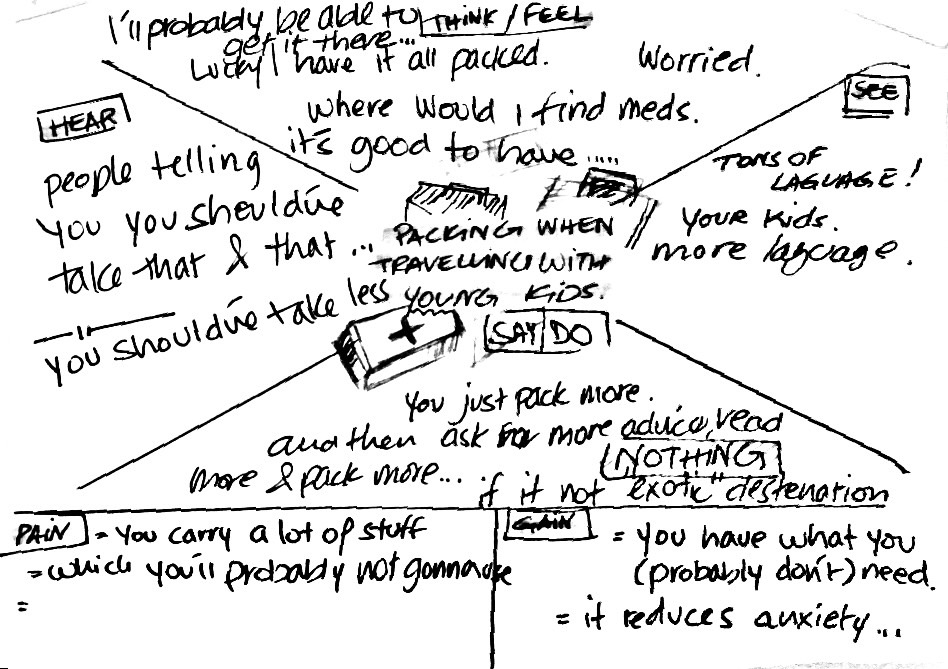 I'll probably be able to
get it there...
THINK / FEEL
Lucky I have it all packed.
Worried.
where would I find meds.
it's good to have .....
HEAR
people telling
you you should've
take that & that ...
—"—
you should've take less
SEE
TONS OF
LAGUAGE!
YOUR KIDS.
more laguage.
PACKING WHEN
TRAVELLING WITH
YOUNG KIDS.
SAY DO
You just pack more.
and then ask for more advice, read
more & pack more...
NOTHING
if it not "exotic" destenation
PAIN = you carry a lot of stuff
= which you'll probably not gonna use
=
GAIN = you have what you
(probably don't) need.
= it reduces anxiety...